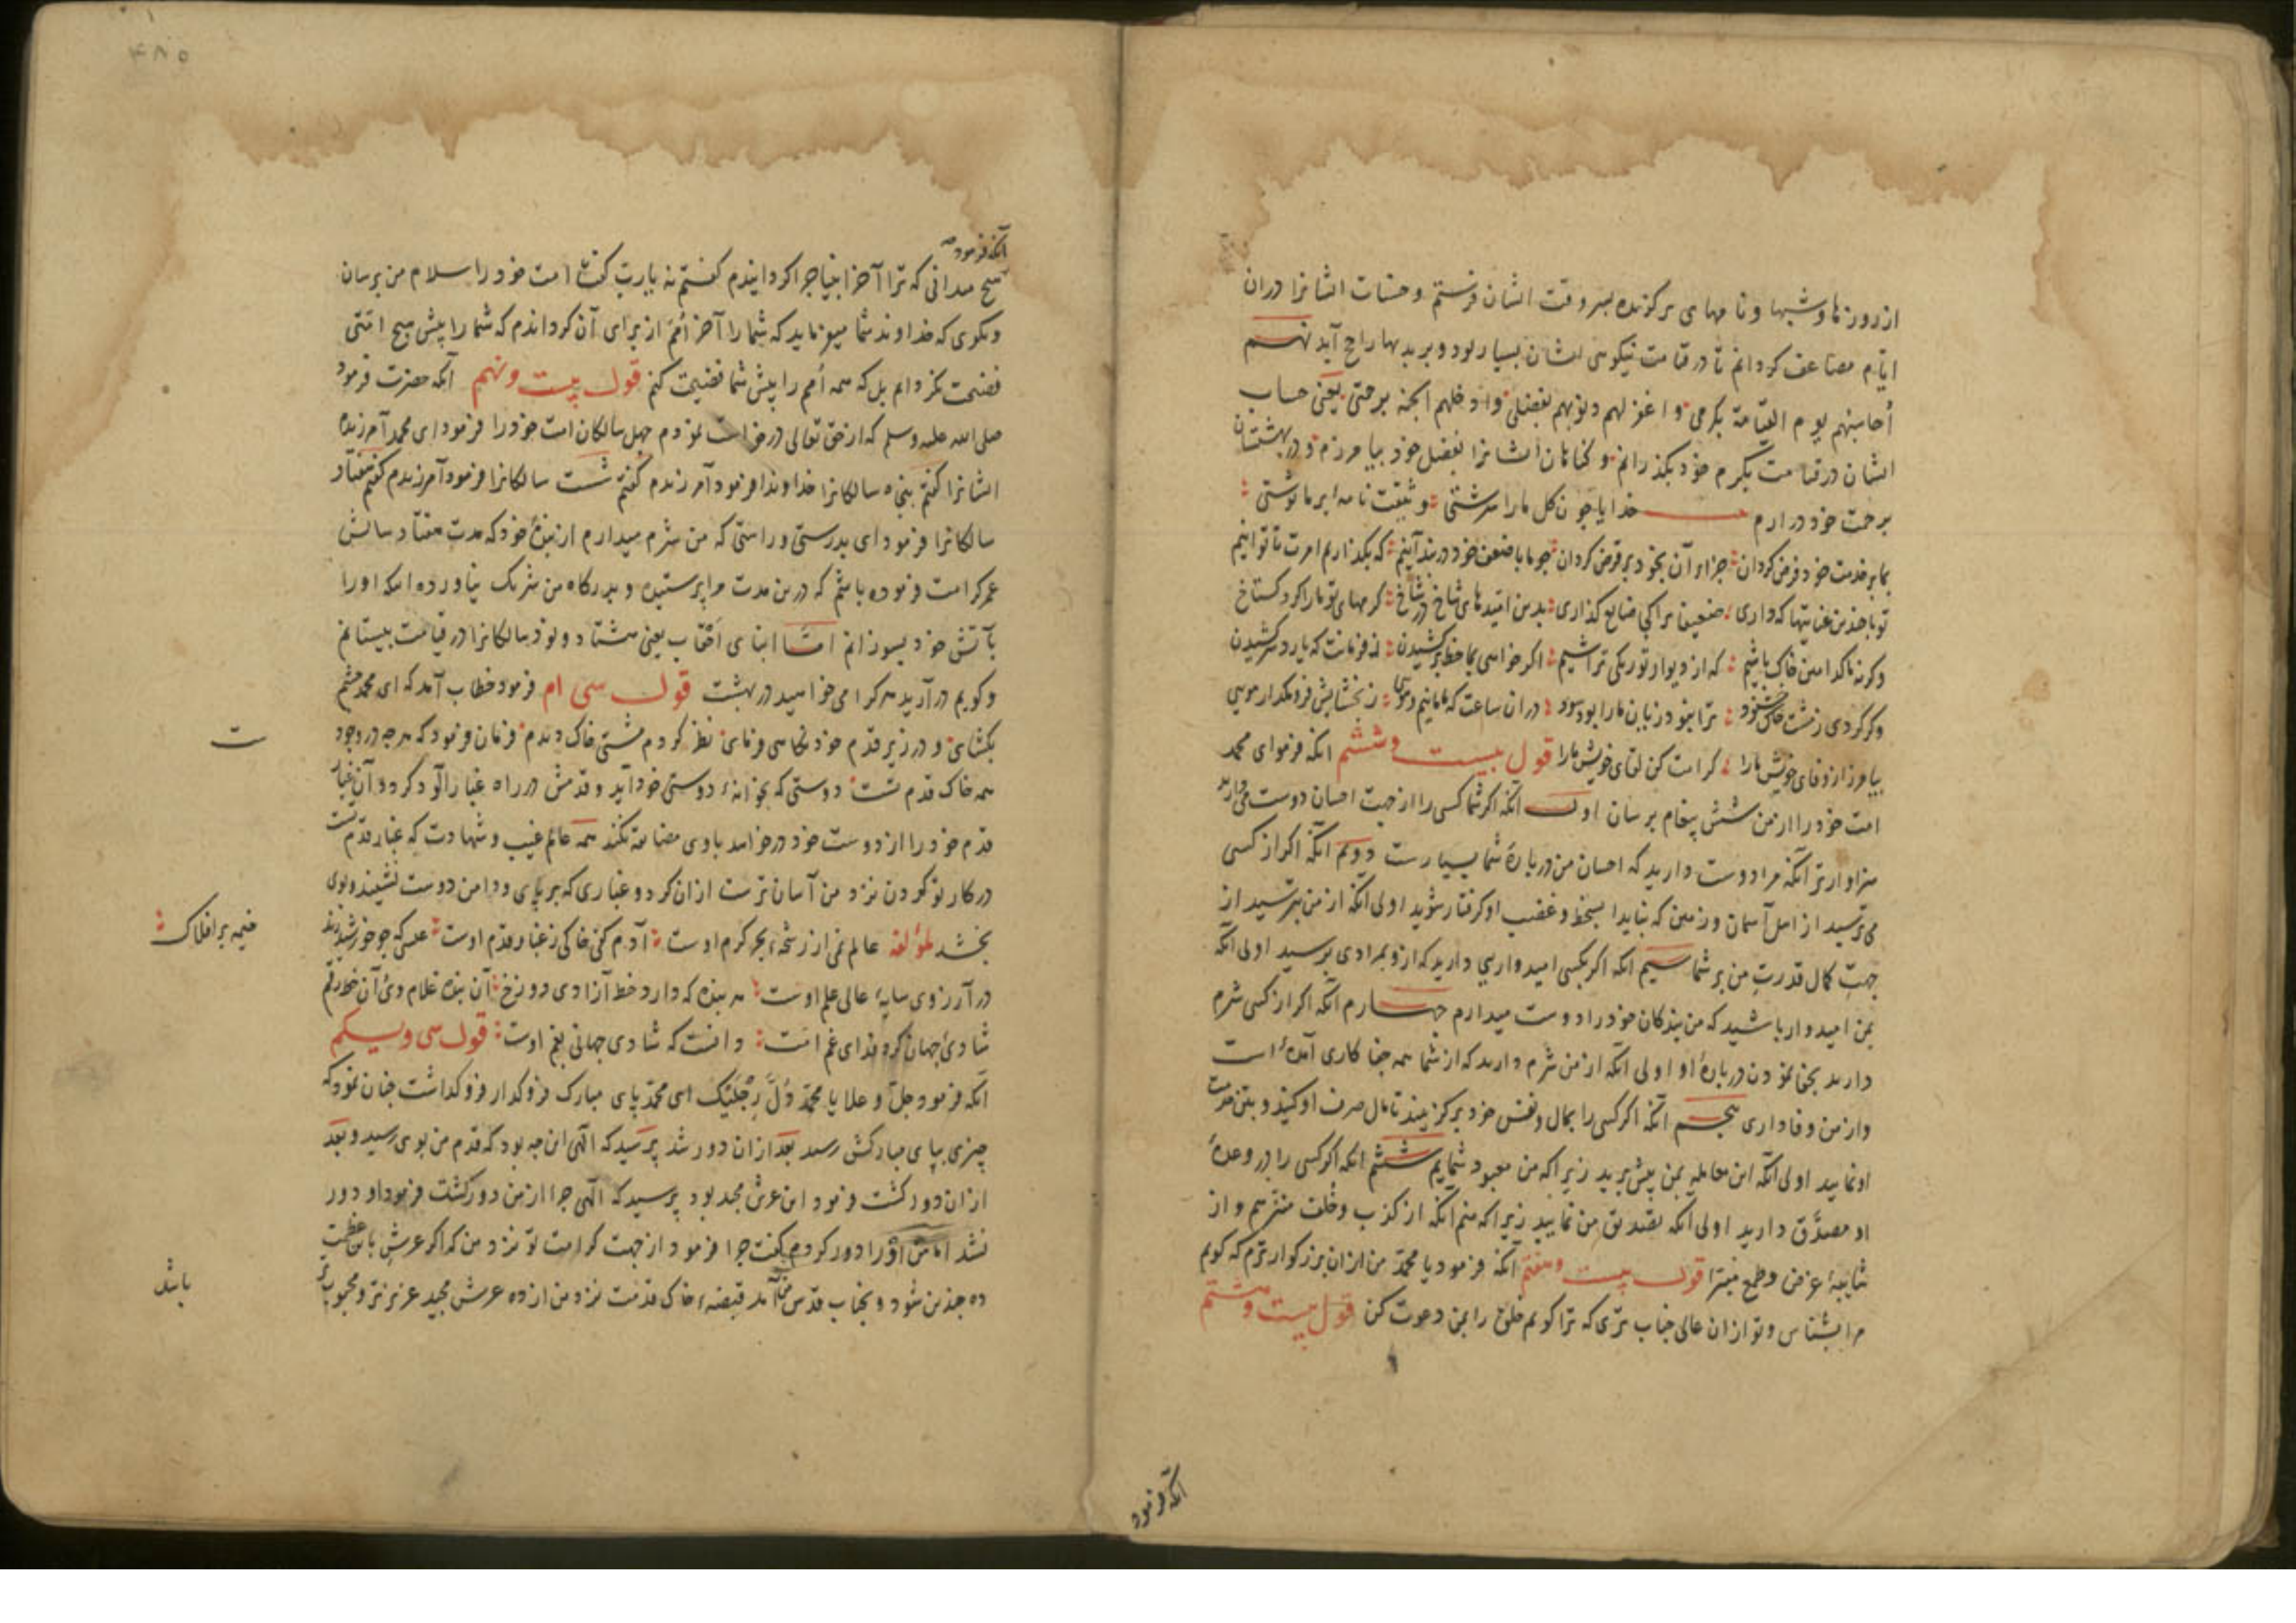 از روزها و شبها و نامهای برکزیده بهر وقت ایشان فرستم و حسنات ایشانرا دران
ایّام مضاعف کردانم تا در قیامت نیکوی ایشان بسیار بود و بر بدیها راجح آید نهم
أحاسبهم یوم القیامة بکرمی و اغفر لهم ذنوبهم بفضلی وادخلهم الجنة برحمتی یعنی حساب
ایشان در قیامت بکرم خود بکذرانم و کناهان ایشانرا بفضل خود بیامرزم و در بهشتشان
برحمت خود درارم خدایا چون کل ما را سرشتی وثیقت نامه ای بر ما نوشتی
بما بر خدمت خود فرض کردان جزاء آن بخود بر قرض کردان چو ما با ضعف خود در بند آنیم که بکذاریم امرت تا توانیم
تو با چندین عنایتها که داری ضعیفان را کی ضایع کذاری بدین امیدهای شاخ در شاخ کرمهای تو ما را کرد کستاخ
وکرنه ما کدامین خاک باشیم که از دیوار تو رنکی تراشیم اکر خواهی بما خط در کشیدن ز فرمانت که یارد سر کشیدن
وکر کردی ز مشتی خاک خشنود ترا نبود زیان ما را بود سود در ان ساعت که ما مانیم و هویی ز بخشایش فرو مکذار مویی
بیامرز از وفای خویش ما را کرامت کن لقای خویش ما را قول بیست وششم انکه فرمود ای محمد
امت خود را از من شش پیغام برسان اول آنکه اکر شما کسی را از جهت احسان دوست می دارید
سزاوارتر آنکه مرا دوست دارید که احسان من در بارهٔ شما بسیارست دویم آنکه اکر از کسی
می ترسید از اهل آسمان و زمین که نباید بسخط و غضب او کرفتار شوید اولی آنکه از من بترسید از
جهت کمال قدرت من بر شما سیم انکه اکر بکسی امیدواری دارید که ازو بمرادی برسید اولی انکه
بمن امیدوار باشید که من بندکان خود را دوست میدارم چهارم آنکه اکر از کسی شرم
دارید بجفا نمودن در بارهٔ او اولی آنکه از من شرم دارید که از شما همه جفا کاری آمده است
و از من وفاداری پنجم آنکه اکر کسی را بمال و نفس خود بر کزینید تا مال صرف او کنید و بتن خدمت
او نمایید اولی آنکه این معامله بمن پیش برید زیرا که من معبود شمایم ششم انکه اکر کسی را در وعدهٔ
او مصدّق دارید اولی آنکه تصدیق من نمایید زیرا که منم انکه از کذب و خلف منزّهم و از
شایبهٔ غرض و طمع مبرّا قول بیست وهفتم آنکه فرمود یا محمّد من از ان بزرکوارترم که کویم
مرا بشناس و تو از ان عالی جناب تری که ترا کویم خلق را بمن دعوت کن قول بیست وهشتم
انکه فرمود
۴۸۵
آنکه فرمود
هیچ میدانی که ترا آخر انبیا چرا کردانیدم کفتم نه یا رب کفت امت خود را سلام من برسان
وبکوی که خداوند شما میفرماید که شما را آخر اُمم از برای آن کرداندم که شما را پیش هیچ امّتی
فضیحت نکردانم بل که همه اُمم را پیش شما فضیحت کنم قول بیست ونهم آنکه حضرت فرمود
صلی الله علیه وسلم که از حق تعالی درخواست نمودم چهل سالکان امت خود را فرمود ای محمد آمرزیدم
ایشانرا کفتم پنجاه سالکانرا خداوندا فرمود آمرزیدم کفتم شست سالکانرا فرمود آمرزیدم کفتم هفتاد
سالکانرا فرمود ای بدرستی و راستی که من شرم میدارم از بندهٔ خود که مدت هفتاد سالش
عمر کرامت فرموده باشم که درین مدت مرا پرستیده و بدرکاه من شرک نیاورده انکه او را
بآتش خود بسوزانم امّا ابنای احقاب یعنی هشتاد و نود سالکانرا در قیامت بیستانم
و کویم در آرید هر کرا می خواهید در بهشت قول سی ام فرمود خطاب آمد که ای محمد چشم
بکشای و در زیر قدم خود نکاهی فرمای نظر کردم مشتی خاک دیدم فرمان فرمود که هرچه در وجود
همه خاک قدم تست دوستی که بخانهٔ دوستی خود آید و قدمش در راه غبار آلود کردد آن غبار
قدم خود را از دوست خود درخواهد با وی مضایقه نکند همه عالم غیب و شهادت که غبار قدم تست
در کار تو کردن نزد من آسان ترست از ان کرد و غباری که بر پای و دامن دوست نشیند و بوی
بخشد لمؤلفه عالم نمی از رشحهٔ بحر کرم اوست آدم کفی خاکی ز غبار قدم اوست عیسی که چو خورشید زند
خیمه بر افلاک
در آرزوی سایهٔ عالی علم اوست هر بنده که دارد خط آزادی دوزخ آن بنده غلام وی آن خط رقم
ت
شادی جهان کرد فدای غم امّت دانست که شادی جهانی بغم اوست قول سی ویکم
آنکه فرمود جلّ وعلا یا محمّد دُلَّ رِجْلَیْکَ ای محمّد پای مبارک فرو کذار فرو کذاشت چنان نمود که
چیزی بپای مبارکش رسید بعد از ان دور شد پرسید که الٓهی این چه بود که قدم من بوی رسید و بعد
از ان دور کشت فرمود این عرش مجید بود پرسید که الٓهی چرا از من دور کشت فرمود او دور
نشد اما من او را دور کردم کفت چرا فرمود از جهت کرامت تو نزد من که اکر عرش باین عظمت
ده چندین شود و بجناب قدس من آید قبضهٔ خاک قدمت نزد من از ده عرش مجید عزیزتر و محبوب تر
باشد